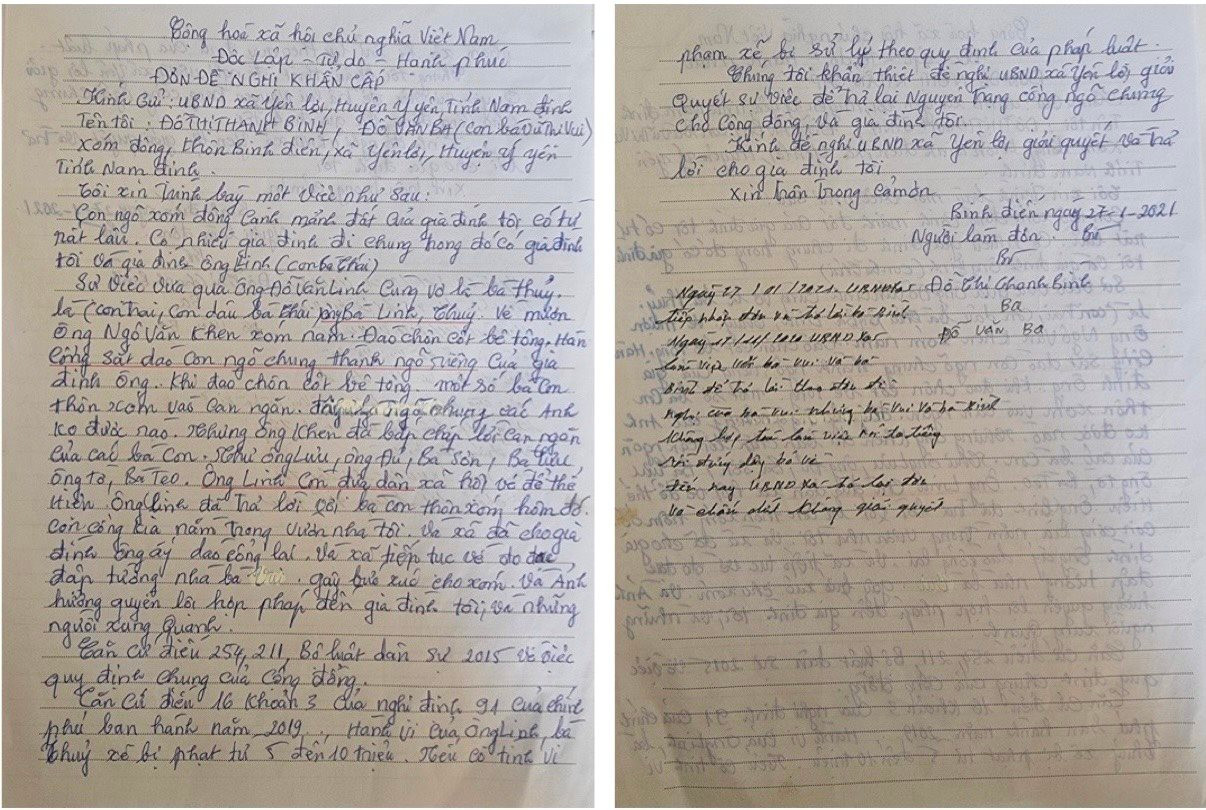 Công hoà xã hội chủ nghĩa Việt Nam
Độc Lập - Tự do - Hạnh phúc
ĐƠN ĐỀ NGHỊ KHẨN CẤP
Kính Gửi: UBND xã Yên lợi, Huyện Ý yên, Tỉnh Nam định
Tên tôi: ĐỖ THỊ THANH BÌNH, ĐỖ VĂN BA (con bà Vũ Thị Vui)
xóm đông, thôn Bình điền, xã Yên lợi, Huyện Ý yên
Tỉnh Nam định.
Tôi xin trình bày một việc như sau:
Con ngõ xóm đông cạnh mảnh đất của gia đình tôi có từ
rất lâu. Có nhiều gia đình đi chung trong đó có gia đình
tôi và gia đình ông Linh (con bà Thái)
Sự việc vừa qua ông Đỗ Văn Linh cùng vợ là bà Thuỷ.
là (con trai, con dâu bà Thái) ông Bà Linh, Thuỷ. Về mượn
ông Ngô Văn Khen xóm nam. Đào chôn cột bê tông. Hàn
Cổng sắt dào con ngõ chung thành ngõ riêng của gia
đình ông. Khi đào chôn cột bê tông một số bà con
thôn xóm vào can ngăn. đây là ngõ chung các Anh
ko được rào. Nhưng ông Khen đã bấp chấp lời can ngăn
của các bà con. Như ông Lưu, ông Đủ, Bà Sơn, Bà
ông tờ, Bà Tẹo. Ông Linh Còn đưa dẫn xã hội về để thể
hiện. Ông Linh đã trả lời với bà con thôn xóm hôm đó.
còn cổng kia nằm trong vườn nhà tôi. Và xã đã cho gia
đình ông ấy dào cổng lại. Và xã tiếp tục về đo đạc
đập tường nhà bà Vui. gây bức xúc cho xóm. Và Ảnh
hưởng quyền lợi hợp pháp đến gia đình tôi, và những
người xung Quanh.
Căn cứ điều 254, 211, Bộ luật dân sự 2015 về việc
quy định chung của Cộng đồng.
Căn cứ điều 16 Khoản 3 của nghị định 91 của chính
phủ ban hành năm 2019.., Hành vi của Ông Linh, bà
Thuỷ xẽ bị phạt từ 5 đến 10 triệu. Nếu cố tình vi
phạm xẽ, bị sử lý theo quy định của pháp luật.
Chúng tôi khẩn thiết đề nghị UBND xã Yên lợi giải
Quyết sự việc để trả lại Nguyên trạng cổng ngõ chung
cho Cộng đồng, và gia đình tôi.
Kính đề nghị UBND xã Yên lợi, giải quyết, và trả
lời cho gia đình tôi
Xin trân trọng cảm ơn.
Bình điền ngày 27-1-2021
Người làm đơn.
Ngày 27/01/2021. UBND xã
Đỗ Thị Thanh Bình
tiếp nhận đơn và trả lời bà Bình
Ba
Đỗ Văn Ba
Ngày UBND xã
làm việc với bà Vui và bà
Bình để trả lời theo đơn đề
nghị của bà Vui nhưng bà Vui và bà Bình
không hợp tác làm việc nói to tiếng
rồi đứng dậy bỏ về
đến nay UBND xã trả lại đơn
và chấm dứt không giải quyết